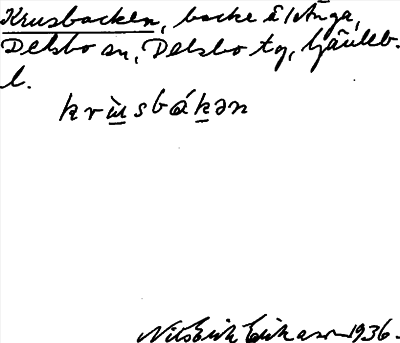 Krusbacken, backe å Långa,
Delsbo sn, Delsbo tg, Gävleb.
l.
krùsbákən
Nils Erik Eriksson 1936.